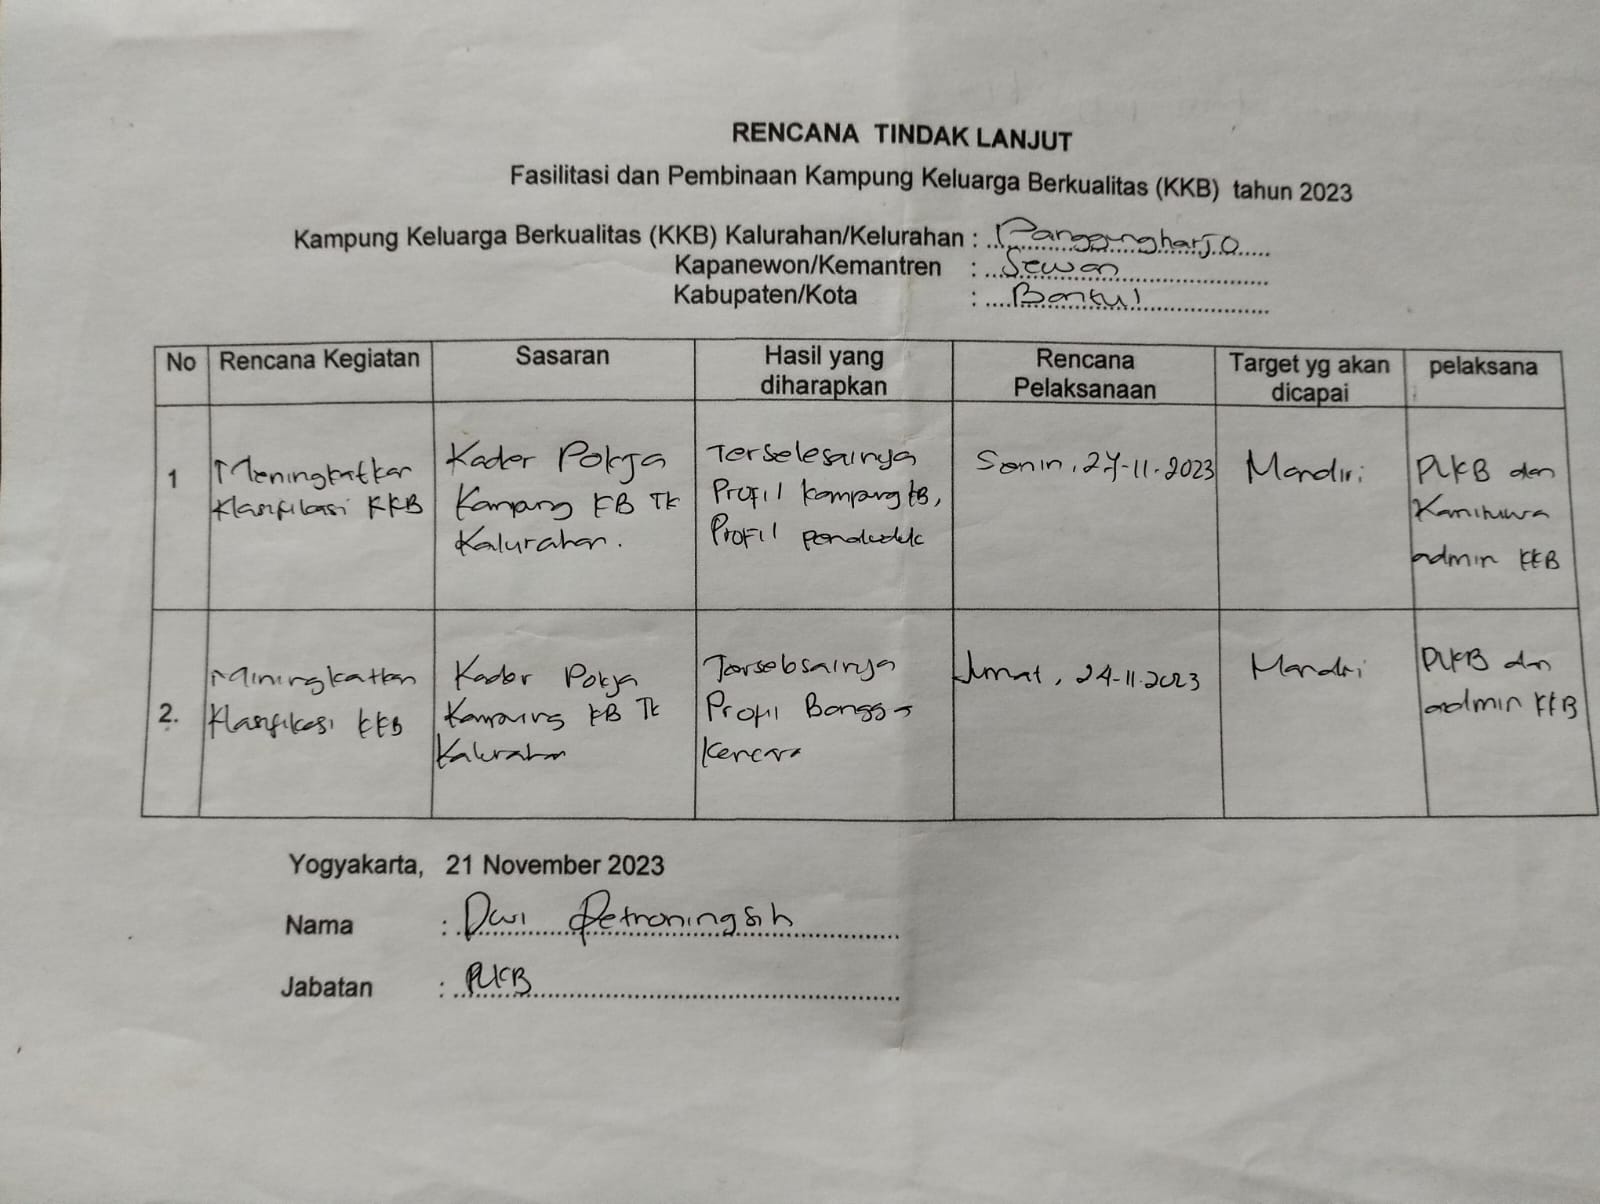 RENCANA TINDAK LANJUT
Fasilitasi dan Pembinaan Kampung Keluarga Berkualitas (KKB) tahun 2023
Kampung Keluarga Berkualitas (KKB) Kalurahan/Kelurahan : Panggungharjo
Kapanewon/Kemantren : Sewon
Kabupaten/Kota : Bantul
No Rencana Kegiatan Sasaran Hasil yang diharapkan Rencana Pelaksanaan Target yg akan dicapai pelaksana
1 Meningkatkan Kader Pokja Terselesainya Senin, 27-11-2023 Mandiri PLKB dan
Klasifikasi KKB Kampung KB Tk Profil kampung KB, Kamituwa
Kalurahan. Profil penduduk admin KKB
2. Miningkatkan Kader Pokja Terselesainya Jumat, 24-11-2023 Mandiri PLKB dan
Klasifikasi KKB Kampung KB Tk Profil Bangga admin KKB
Kalurahan Kencana
Yogyakarta, 21 November 2023
Nama : Dwi Retnoningsih
Jabatan : PLKB